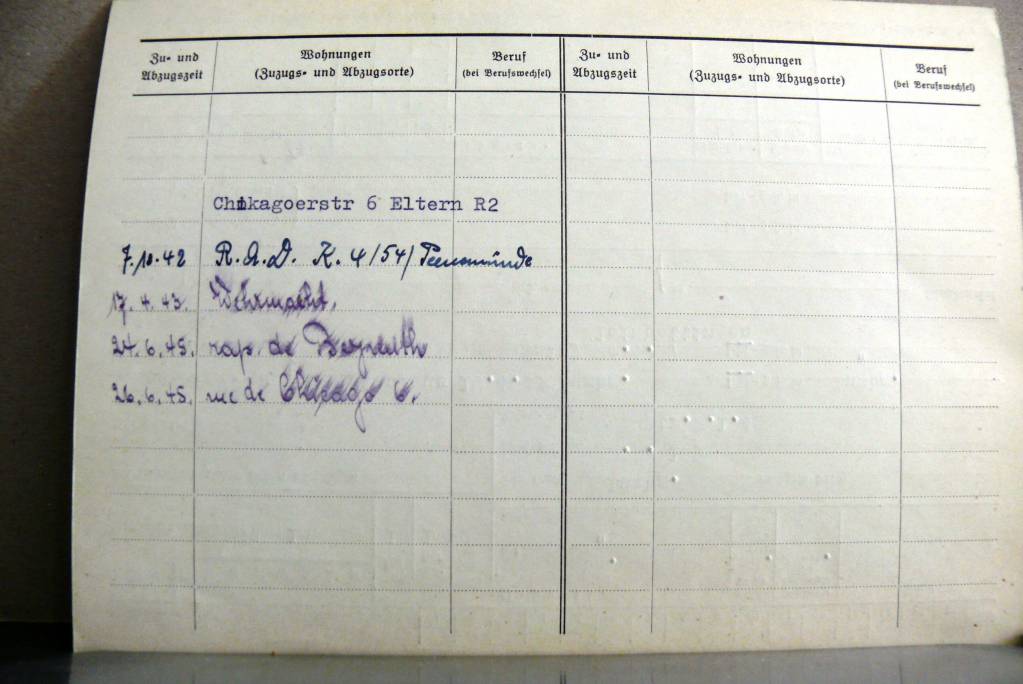 Zu- und Abzugszeit
Wohnungen
(Zuzugs- und Abzugsorte)
Beruf
(bei Berufswechsel)
Zu- und Abzugszeit
Wohnungen
(Zuzugs- und Abzugsorte)
Beruf
(bei Berufswechsel)
Chikagoerstr 6 Eltern R2
7.10.42 R.A.D. K. 4/54/ Peenemünde
17.4.43. Wehrmacht.
24.6.45. rap. de Bayreuth
26.6.45. rue de Chicago 6.